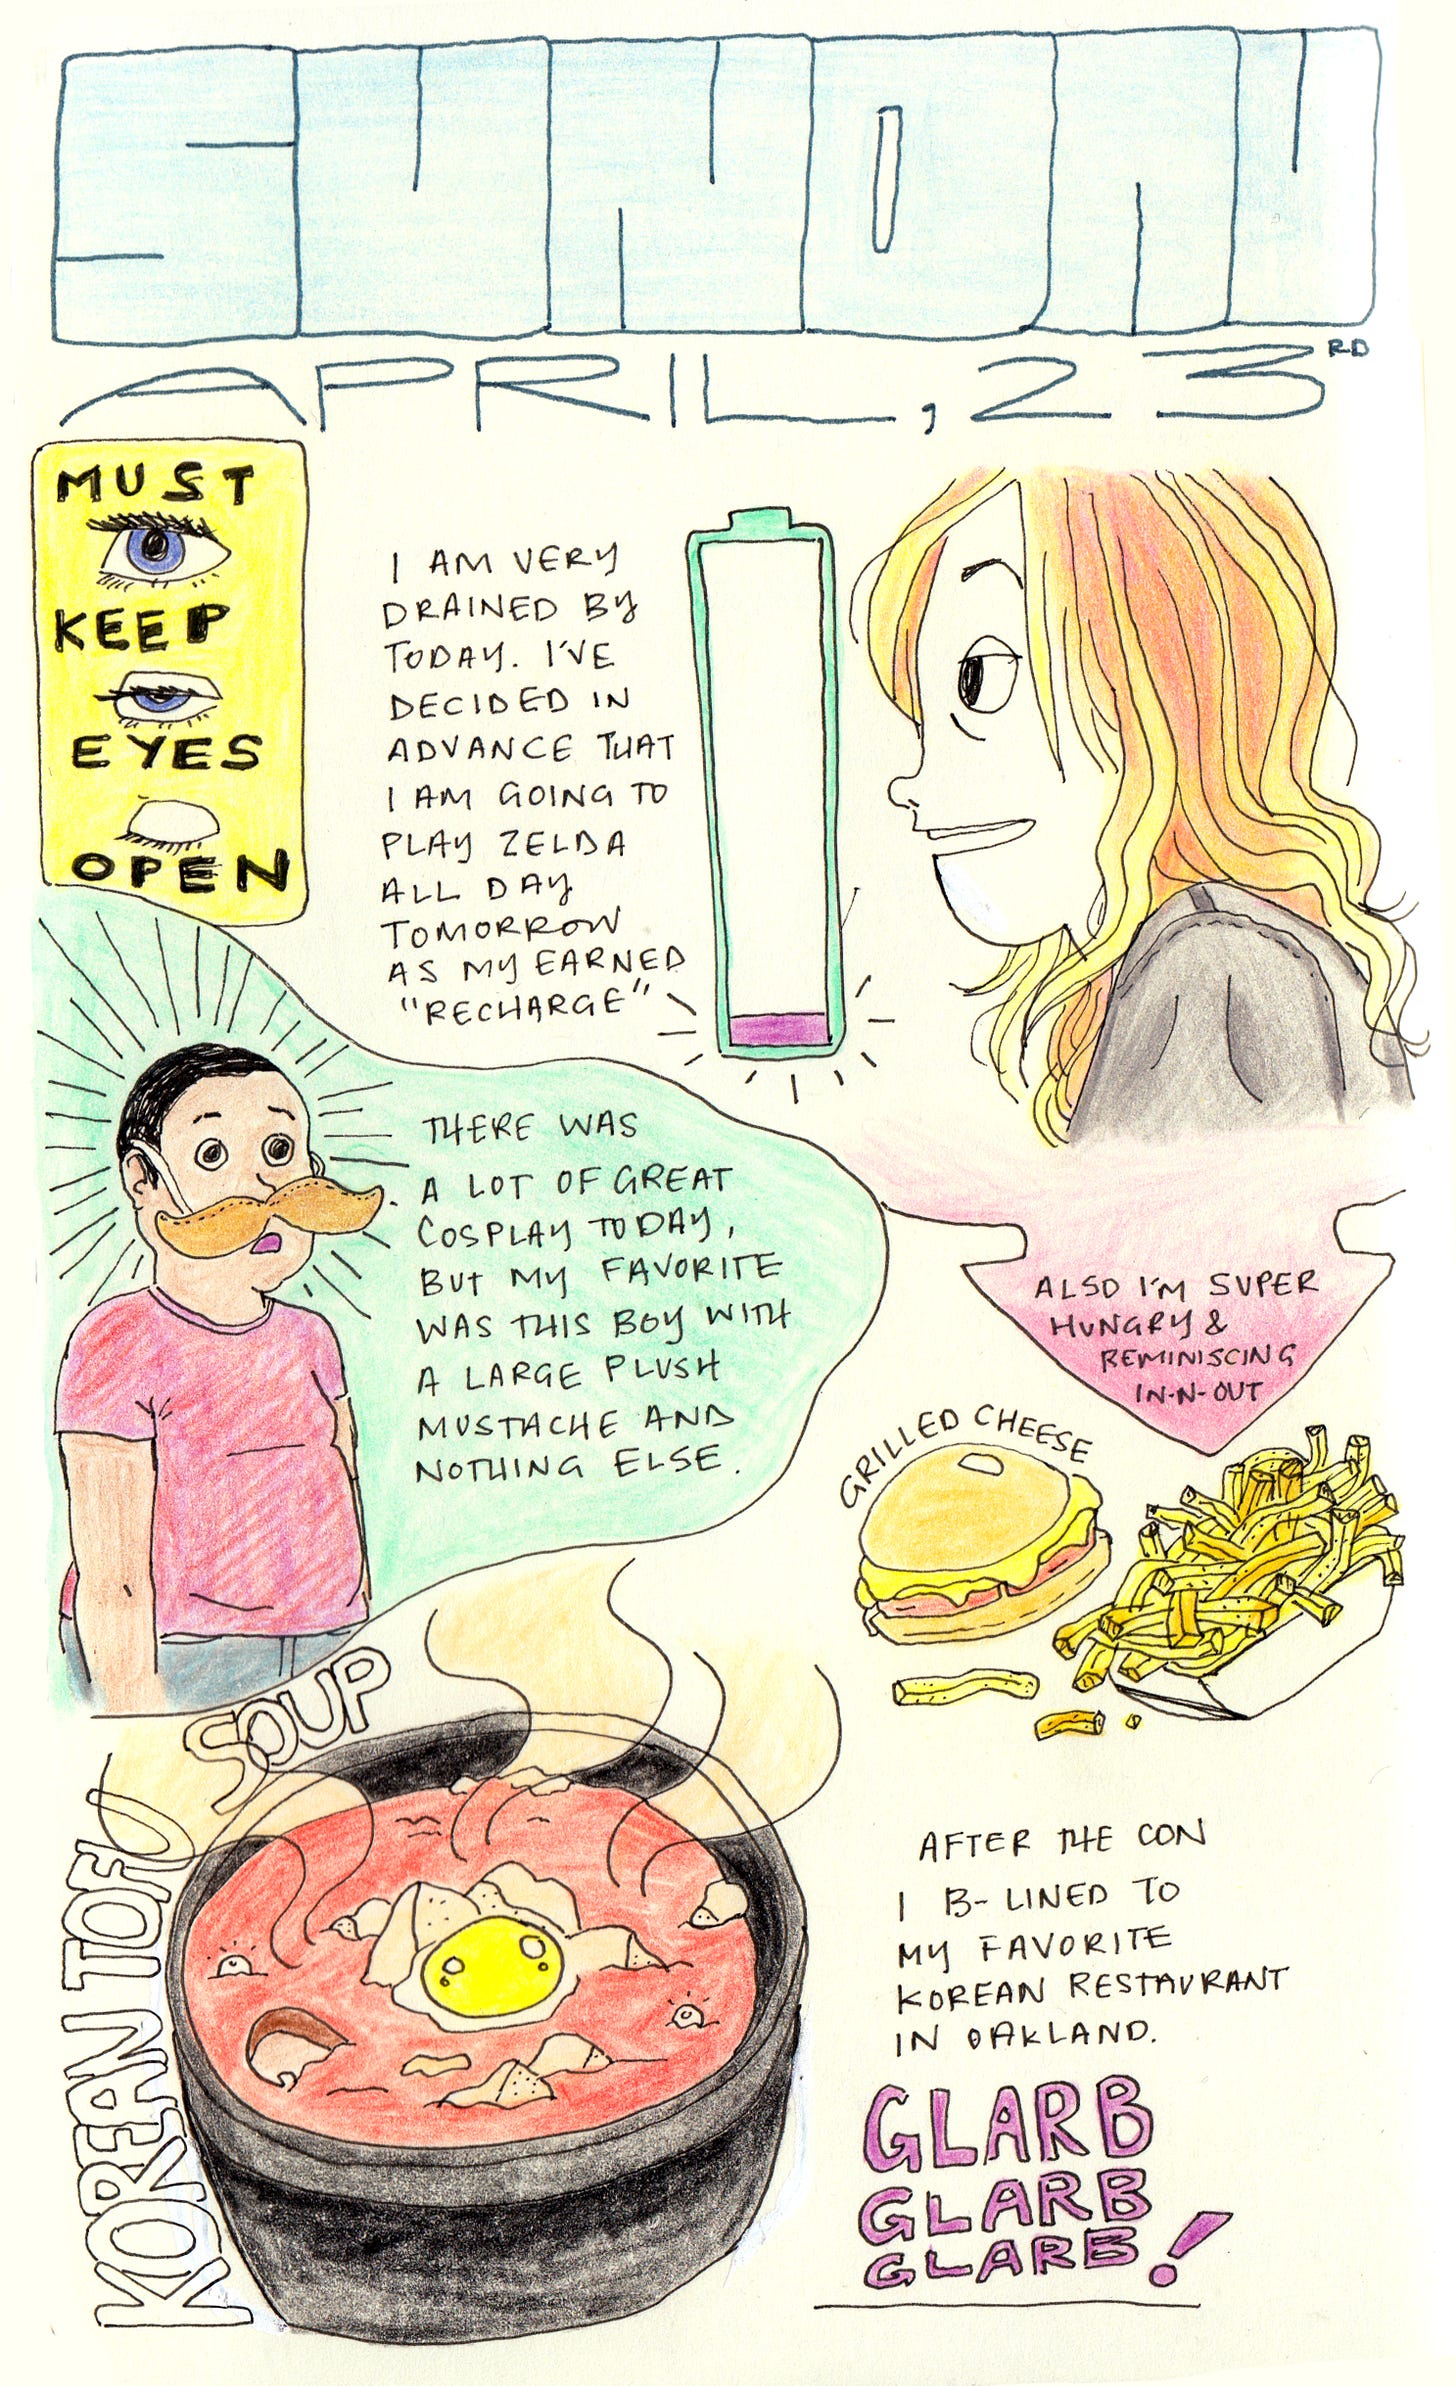 SUNDAY
APRIL, 23RD
MUST
KEEP
EYES
OPEN
I AM VERY
DRAINED BY
TODAY. I'VE
DECIDED IN
ADVANCE THAT
I AM GOING TO
PLAY ZELDA
ALL DAY
TOMORROW
AS MY EARNED
"RECHARGE"
THERE WAS
A LOT OF GREAT
COSPLAY TODAY,
BUT MY FAVORITE
WAS THIS BOY WITH
A LARGE PLUSH
MUSTACHE AND
NOTHING ELSE.
ALSO I'M SUPER
HUNGRY &
REMINISCING
IN-N-OUT
GRILLED CHEESE
KOREAN TOFU SOUP
AFTER THE CON
I B-LINED TO
MY FAVORITE
KOREAN RESTAURANT
IN OAKLAND.
GLARB
GLARB
GLARB!